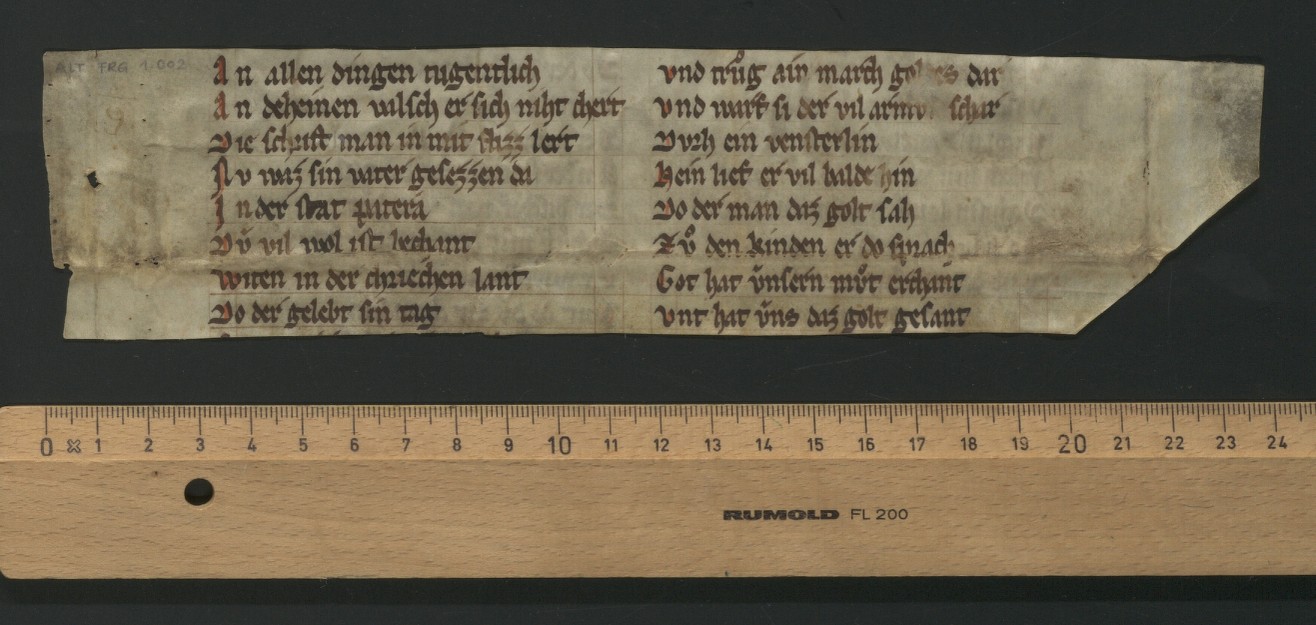 ALT FRG 1.002
A n allen dingen tugentlich
A n deheinen valsch er sich niht chert
Die schrift man in mit flizz lert
Nv waz sin vater gesezzen da
I n der stat patera
Dv̊ vil wol ist bechant
Witen in der chriechen lant
Do der gelebt sin tag
vnd trůg ain march goldes dar
vnd warf si der vil armen schar
Dvrh ein vensterlin
Hein lief er vil balde hin
Do der man daz golt sah
Zv̊ den kinden er do sprach
Got hat v̊nsern mv̊t erchant
vnt hat v̊ns daz golt gesant
0 1 2 3 4 5 6 7 8 9 10 11 12 13 14 15 16 17 18 19 20 21 22 23 24
RUMOLD FL 200